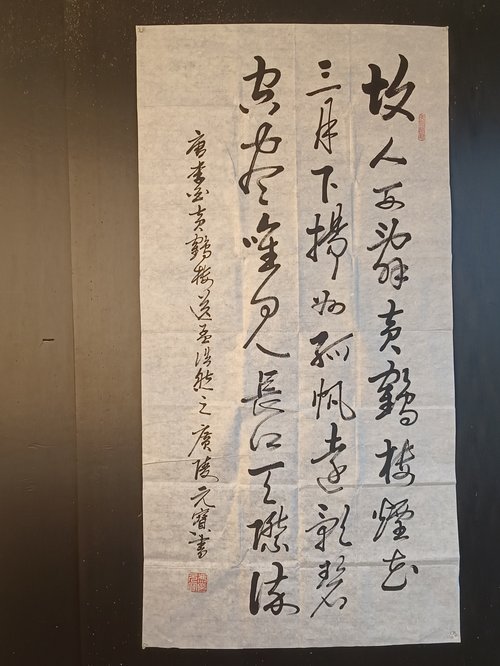 故人西辭黄鶴楼煙花
三月下揚州孤帆遠影碧
空尽唯見長江天際流
唐李白黄鶴楼送孟浩然之廣陵元寶書